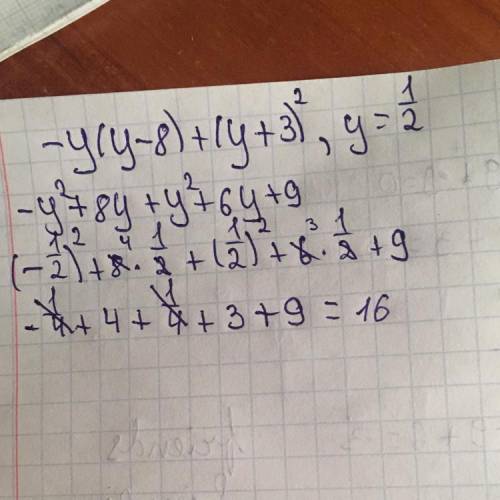 -y(y-8)+(y+3)², y=1/2
-y²+8y+y²+6y+9
(-1/2)²+8⁴·1/2+(1/2)²+6³·1/2+9
-1/4+4+1/4+3+9=16